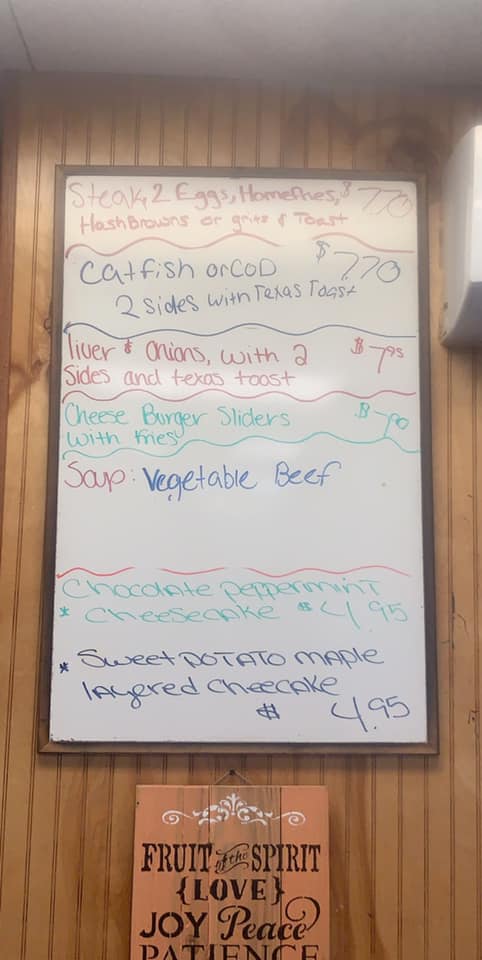 Steak, 2 Eggs, Homefries, $ 770
HashBrowns or grits & Toast
Catfish or COD $ 7.70
2 sides with Texas Toast
liver & Onions, with 2 $ 7.95
Sides and texas toast
Cheese Burger Sliders $ 7.70
with fries
Soup: Vegetable Beef
Chocolate peppermint
* Cheesecake $ 4.95
* Sweet POTATO maple
layered cheecake
$ 4.95
FRUIT of the SPIRIT
{LOVE}
JOY Peace
PATIENCE